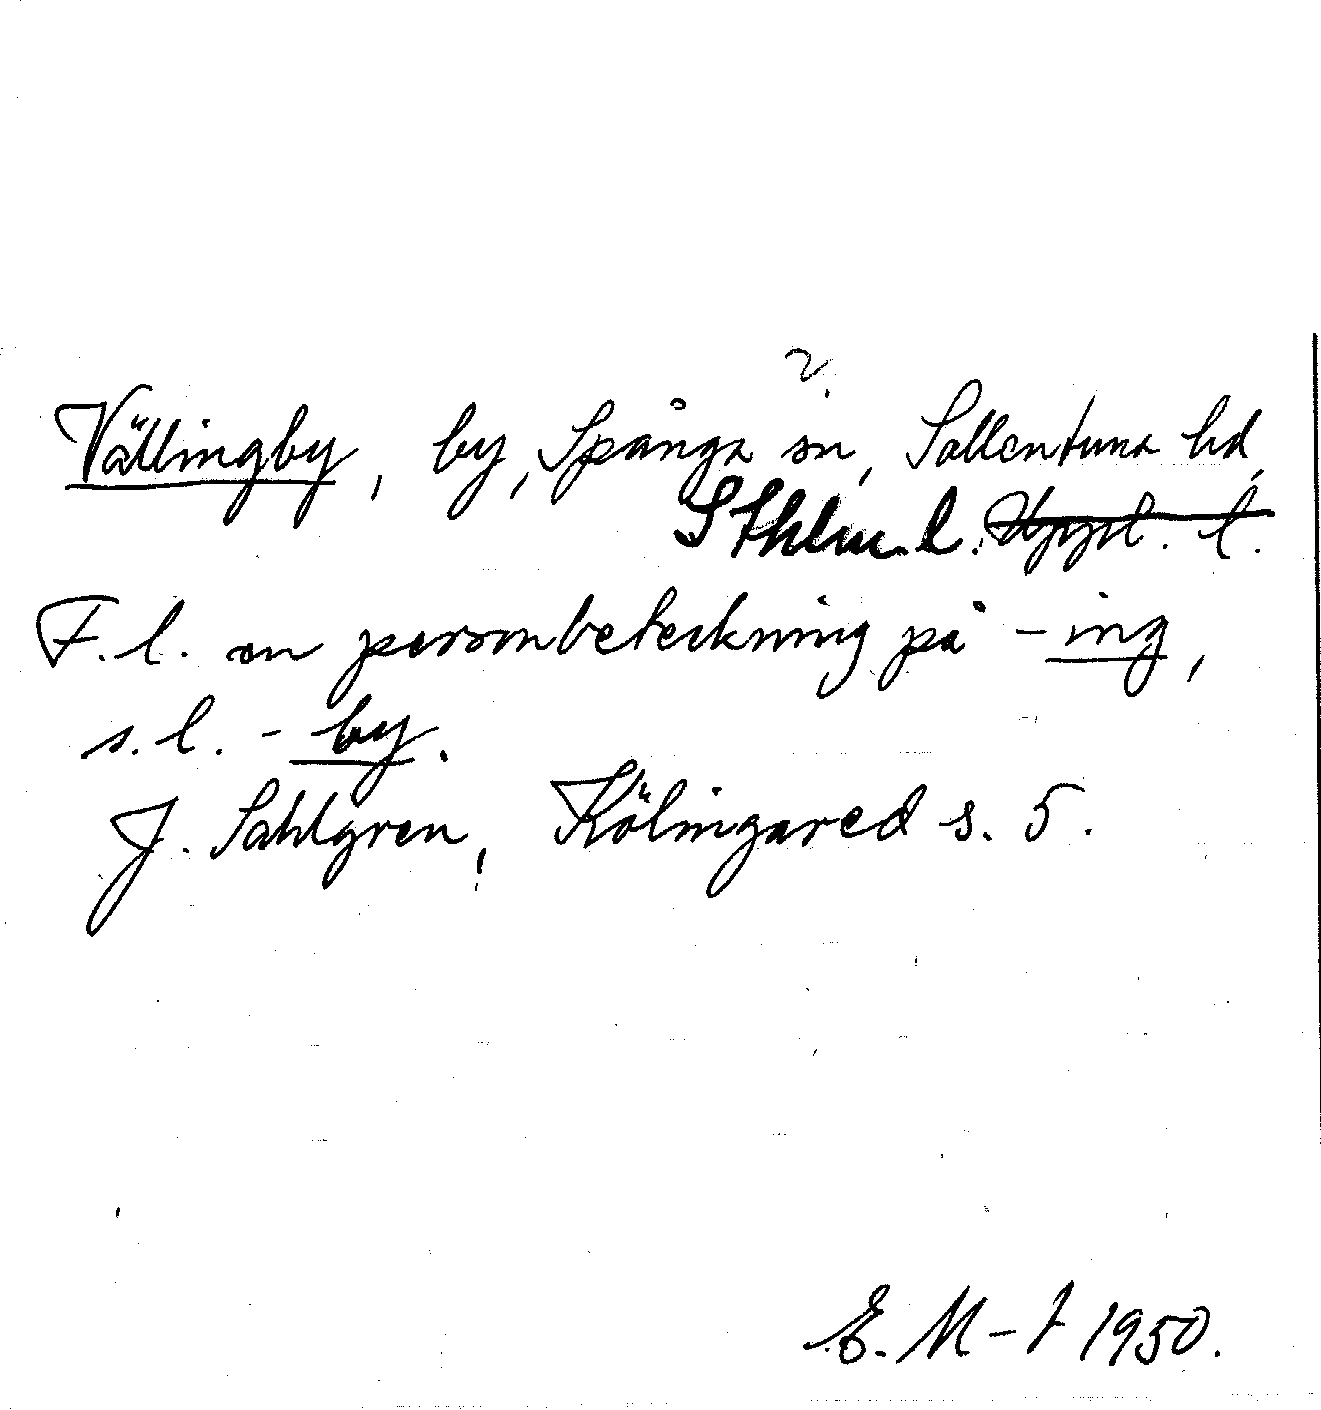 Vällingby, by, Spånga sn, Sollentuna hd,
Sthlm. l. Uppl. l.
F.l. en personbeteckning på -ing,
s.l. -by.
J. Sahlgren, Kölingared s. 5.
E. M-t 1950.